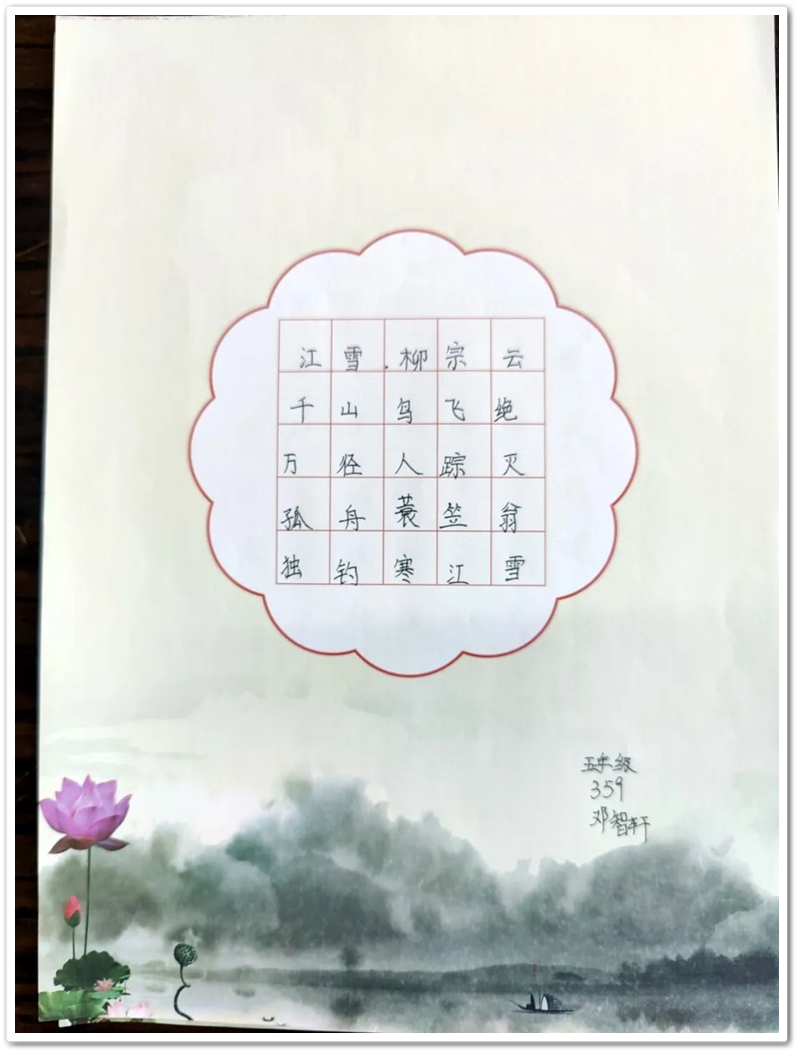 江雪.柳宗云
千山鸟飞绝
万径人踪灭
孤舟蓑笠翁
独钓寒江雪
五年级
359
邓智轩